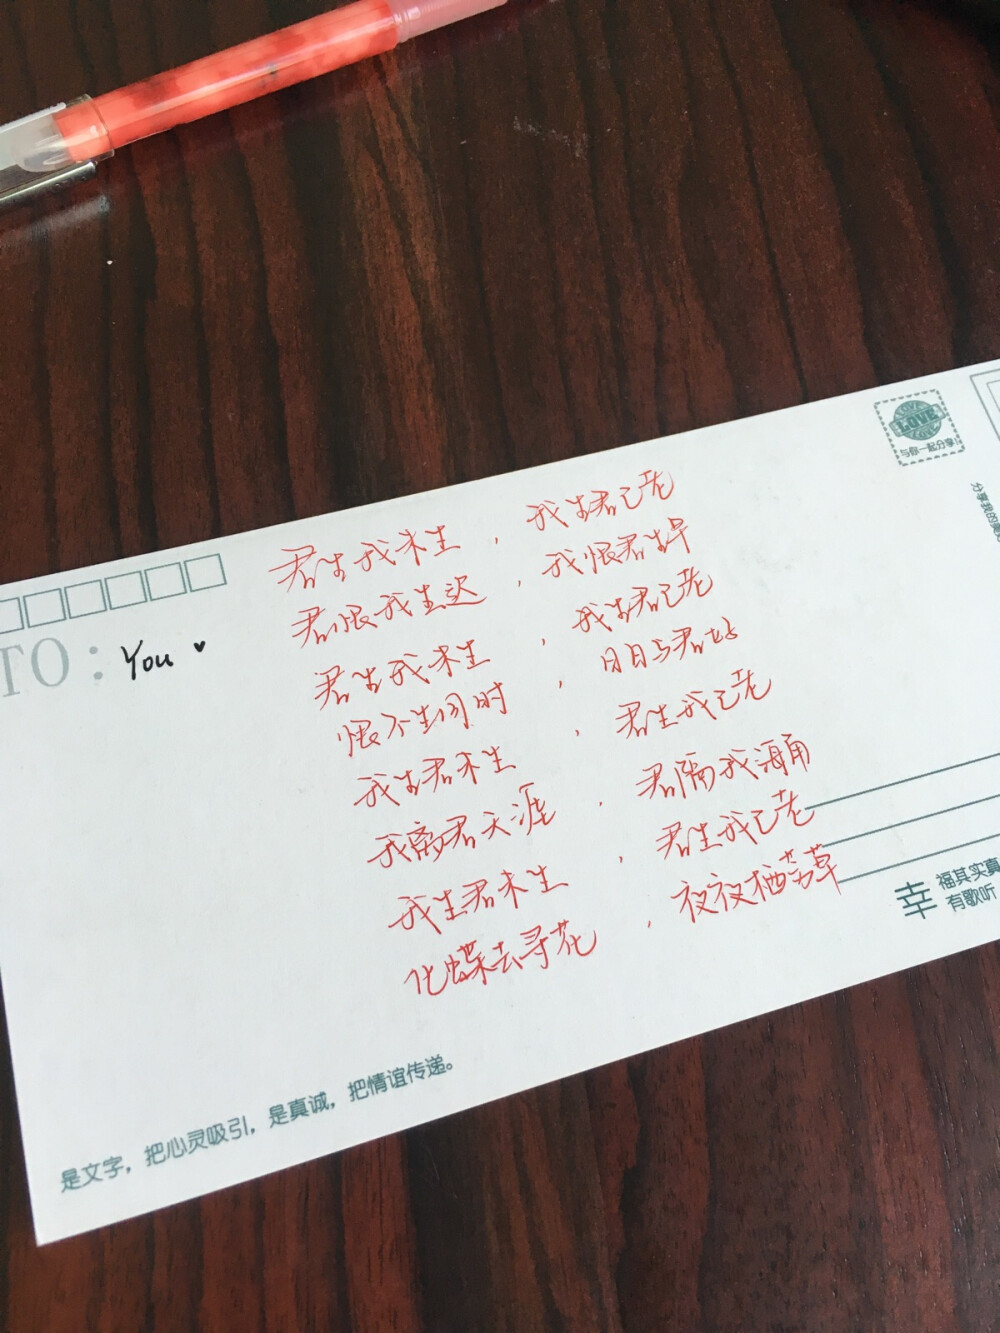 LOVE
与你一起分享
TO: You
君生我未生，我生君已老
君恨我生迟，我恨君生早
君生我未生，我生君已老
恨不生同时，日日与君好
我生君未生，君生我已老
我离君天涯，君隔我海角
我生君未生，君生我已老
化蝶去寻花，夜夜栖芳草
幸福其实真
有歌听
是文字，把心灵吸引，是真诚，把情谊传递。